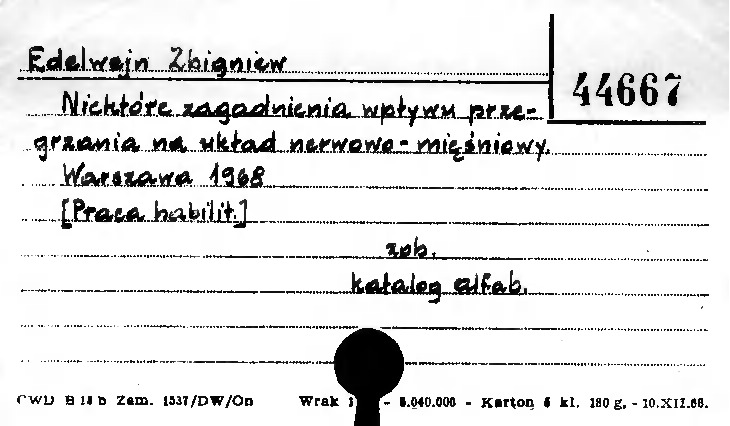 Edelwejn Zbigniew
44667
Niektóre zagadnienia wpływu prze-
grzania na układ nerwowo-mięśniowy.
Warszawa 1968
[Praca habilit.]
zob.
katalog alfab.
CWD B 18 b Zam. 1537/DW/On Wrak - 5.040.000 - Karton kl. 180 g. - 10.XII.66.